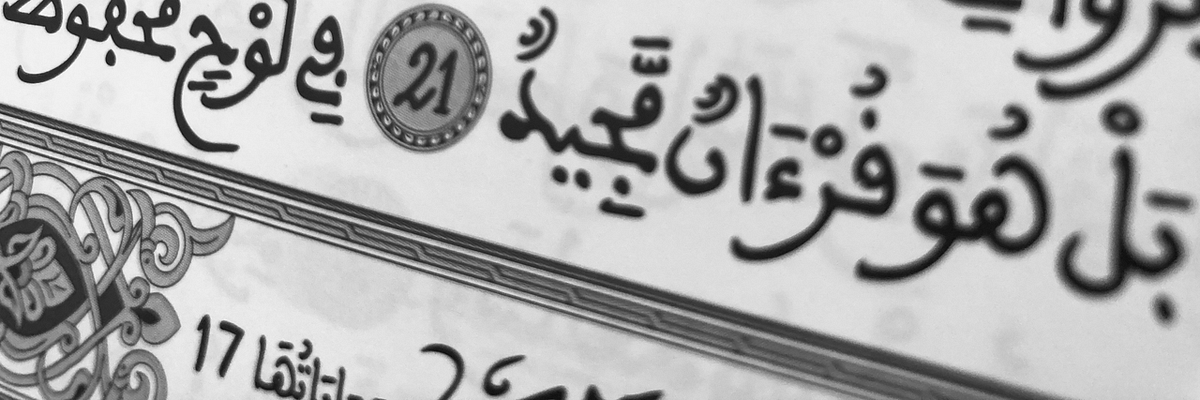 بَلْ هُوَ قُرْءَانٌ مَّجِيدٌ 21 فِي لَوْحٍ مَّحْفُوظٍ
وَءَايَاتُهَا 17